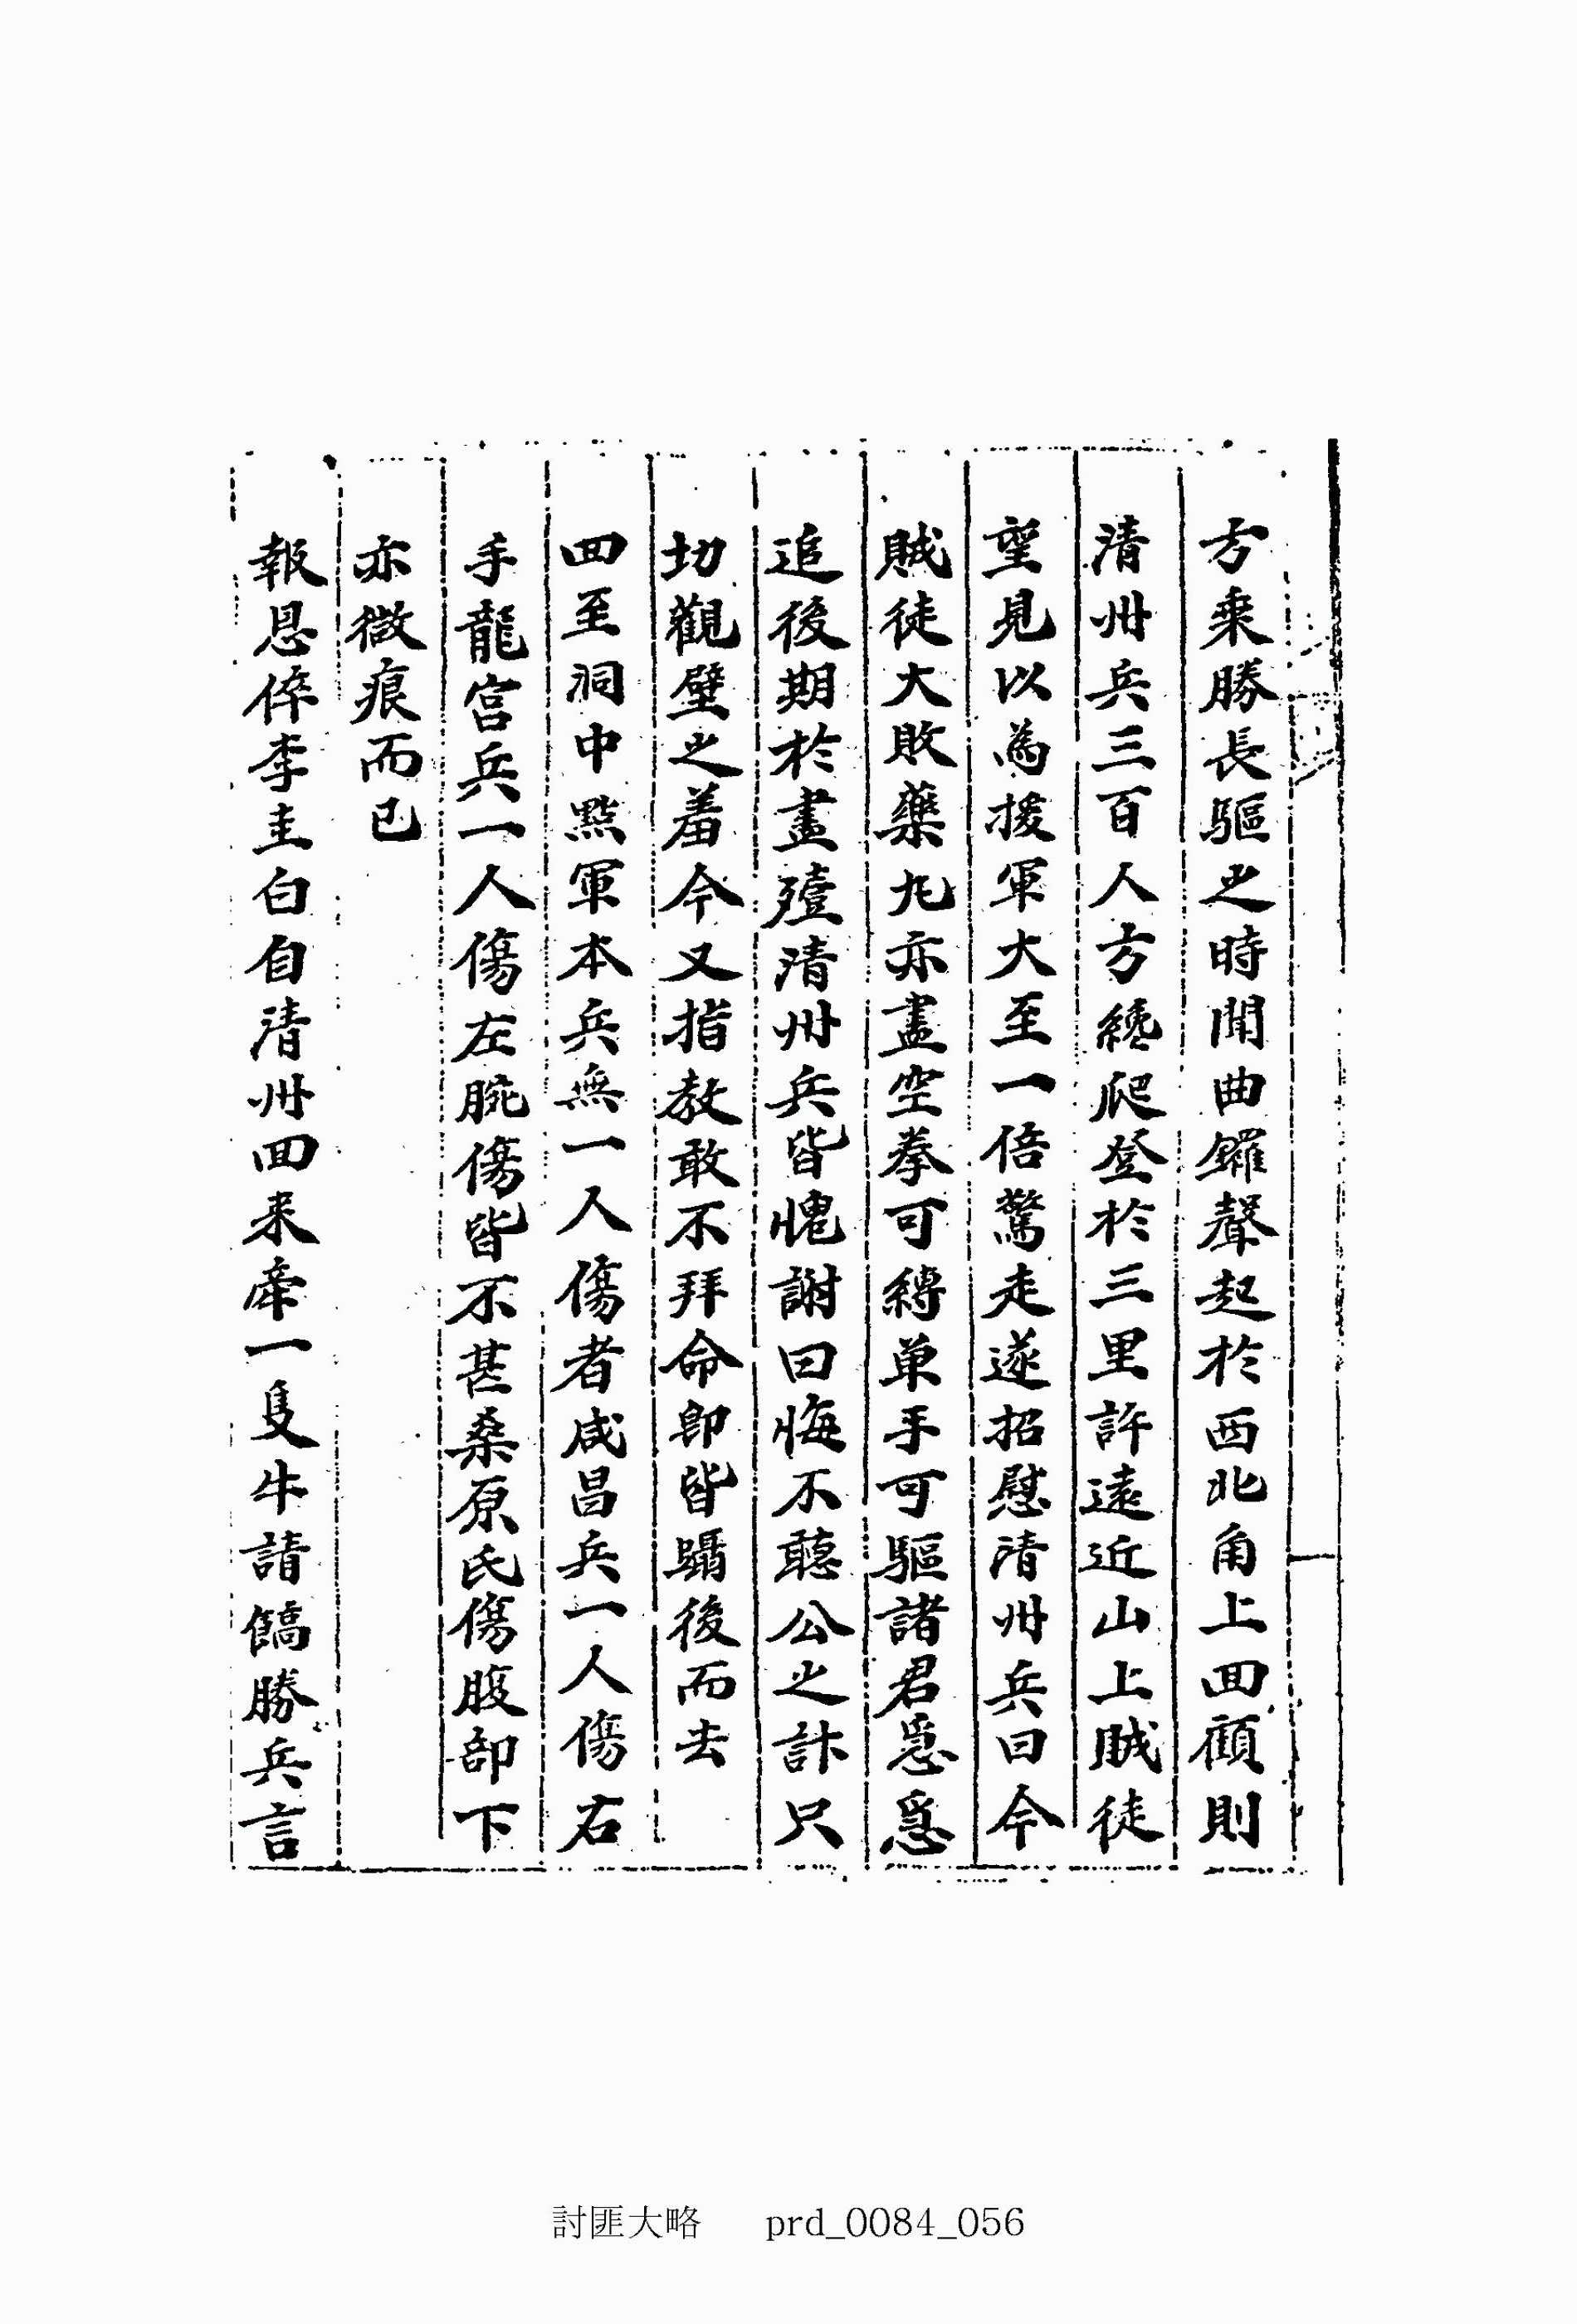 方乗勝長驅之時聞曲鑼聲起於西北角上回顧則
清州兵三百人方纔爬登於三里許遠近山上賊徒
望見以為援軍大至一倍驚走遂招慰清州兵曰今
賊徒大敗藥丸亦盡空拳可縛单手可驅諸君急急
追後期於盡殪清州兵皆愧謝曰悔不聽公之計只
切觀壁之羞今又指敎敢不拜命卽皆躡後而去
回至洞中點軍本兵無一人傷者咸昌兵一人傷右
手龍宮兵一人傷左腕傷皆不甚桑原氏傷腹部下
亦微痕而已
報恩倅李圭白自清州回来牽一隻牛請饋勝兵言
討匪大略 prd_0084_056